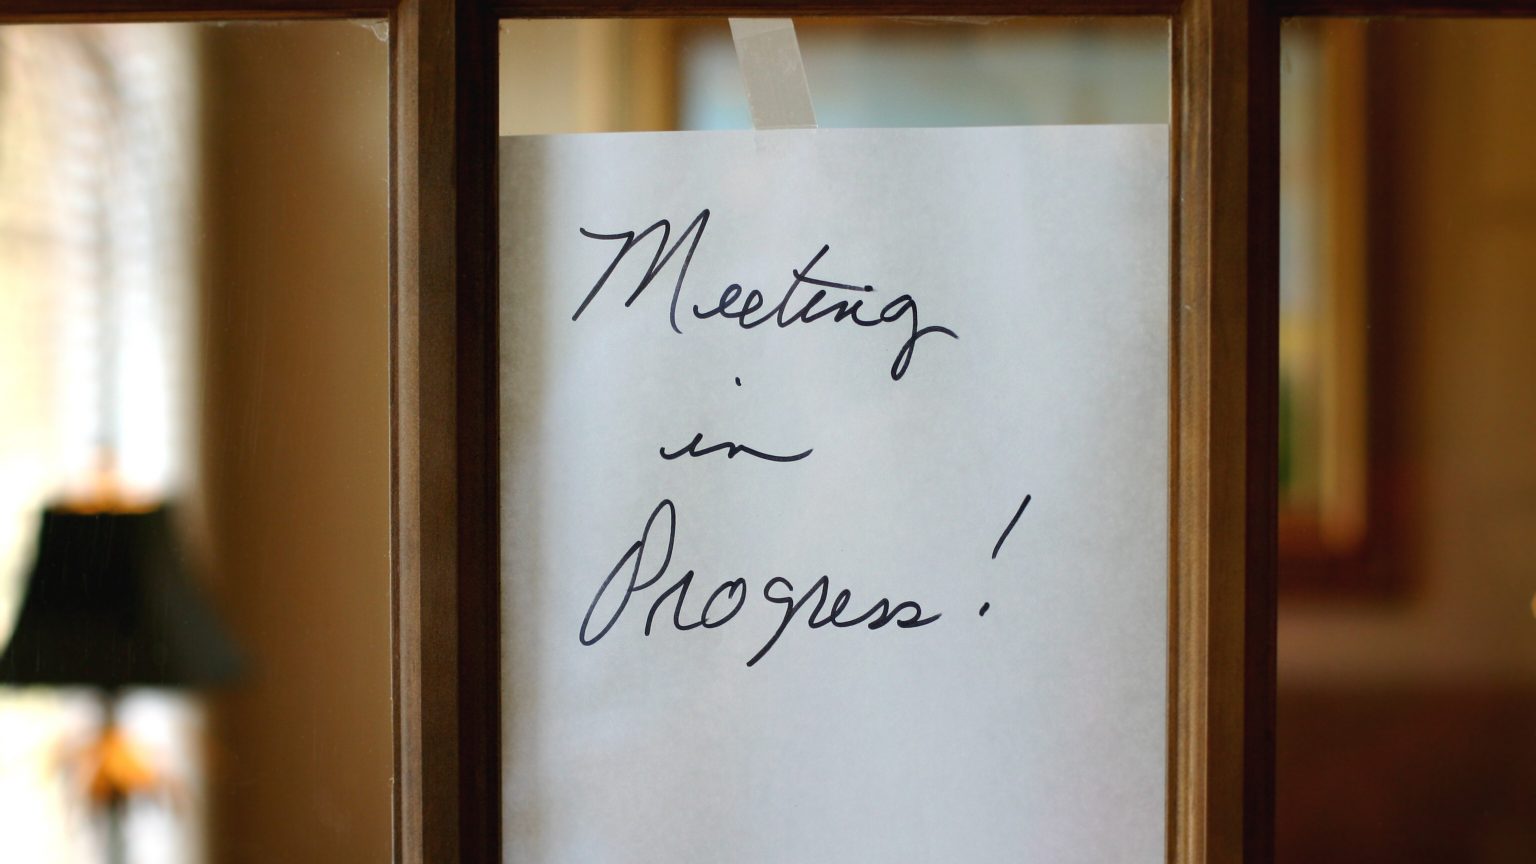 Meeting
in
Progress!